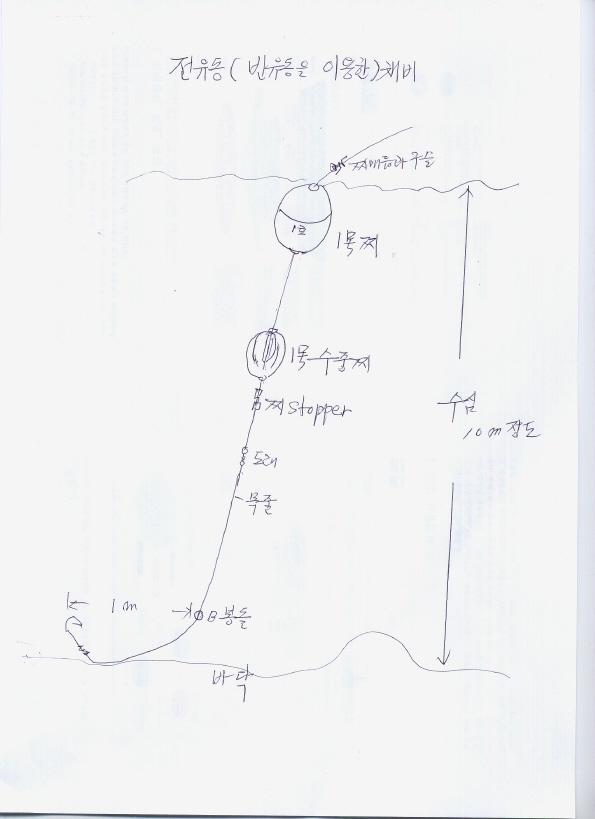 전유동(반유동을 이용한)채비
찌매듭과 구슬
1호
1호찌
1호 수중찌
찌 stopper
수심
10m 정도
도래
목줄
1m
B봉돌
바닥